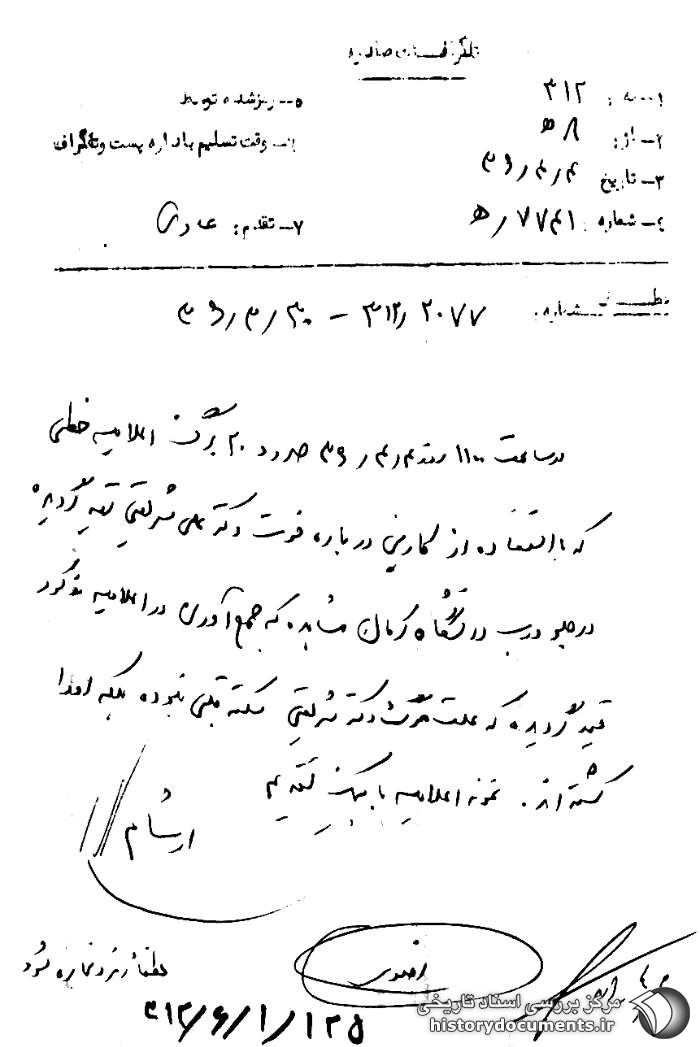 تلگرافات صادره
۱ـ به : ۳۱۲
۲ـ از : ۸ ه‍
۳ـ تاریخ ۳۶/۴/۴
۴ـ شماره : ۷۷۴۱/ ه‍
۵ـ رمز شده توسط
۶ـ وقت تسلیم باداره پست و تلگراف
۷ـ تقدم : عادی
عطف
شماره . ۳۱۲/۲۰۷۷ – ۳۶/۳/۳۰
در ساعت ۱۱۰۰ روز ۳۶/۴/۴ حدود ۲۰ برگ اعلامیه خطی
که با استفاده از کاربن درباره فوت دکتر علی شریعتی تهیه گردیده
در جلو درب دانشگاه کرمان مشاهده که جمع آوری در اعلامیه مذکور
قید گردیده که علت فوت دکتر شریعتی سکته قلبی نبوده بلکه او را
کشته اند . نمونه اعلامیه با پیک تقدیم
آرشام
رضوی
لطفاً رمز و نمازه شود
۳۱۲/۶/۱/۱۲۵
مرکز بررسی اسناد تاریخی
historydocuments.ir